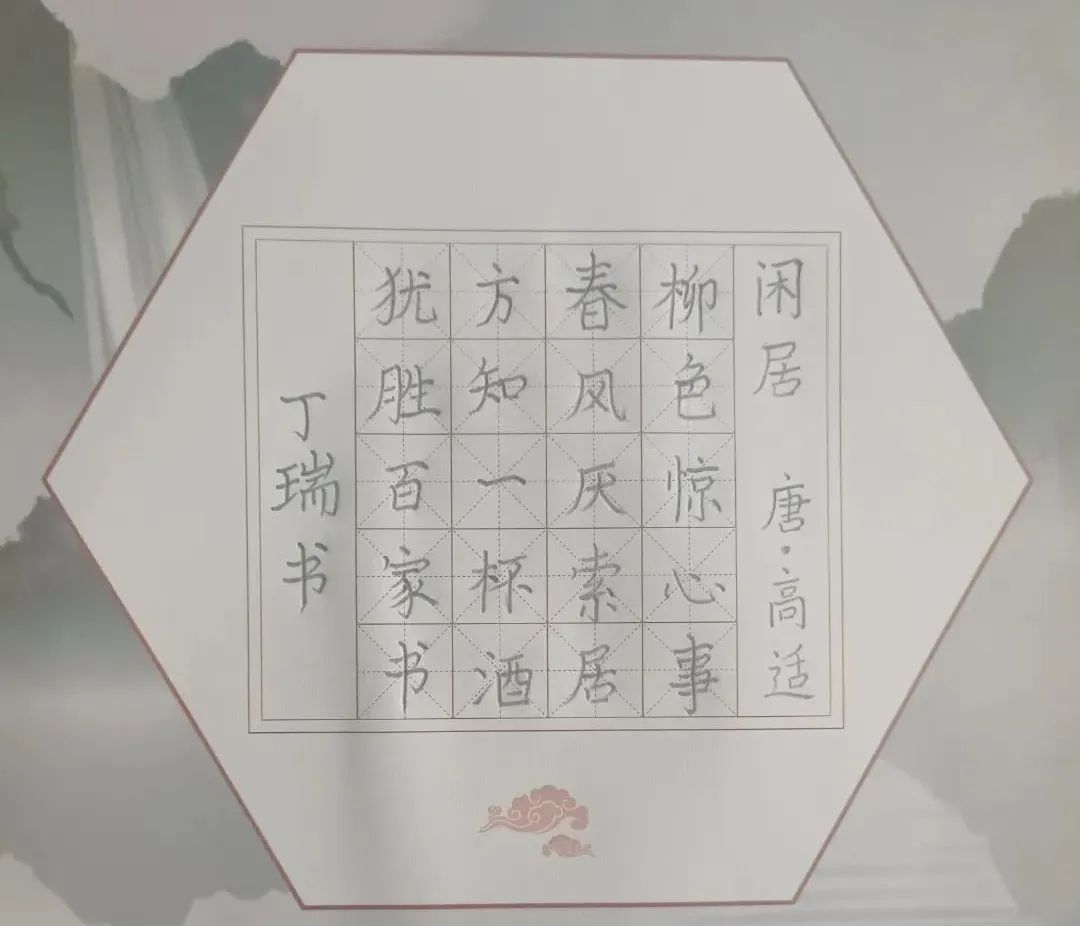 闲居 唐·高适
柳色惊心事
春风厌索居
方知一杯酒
犹胜百家书
丁瑞书